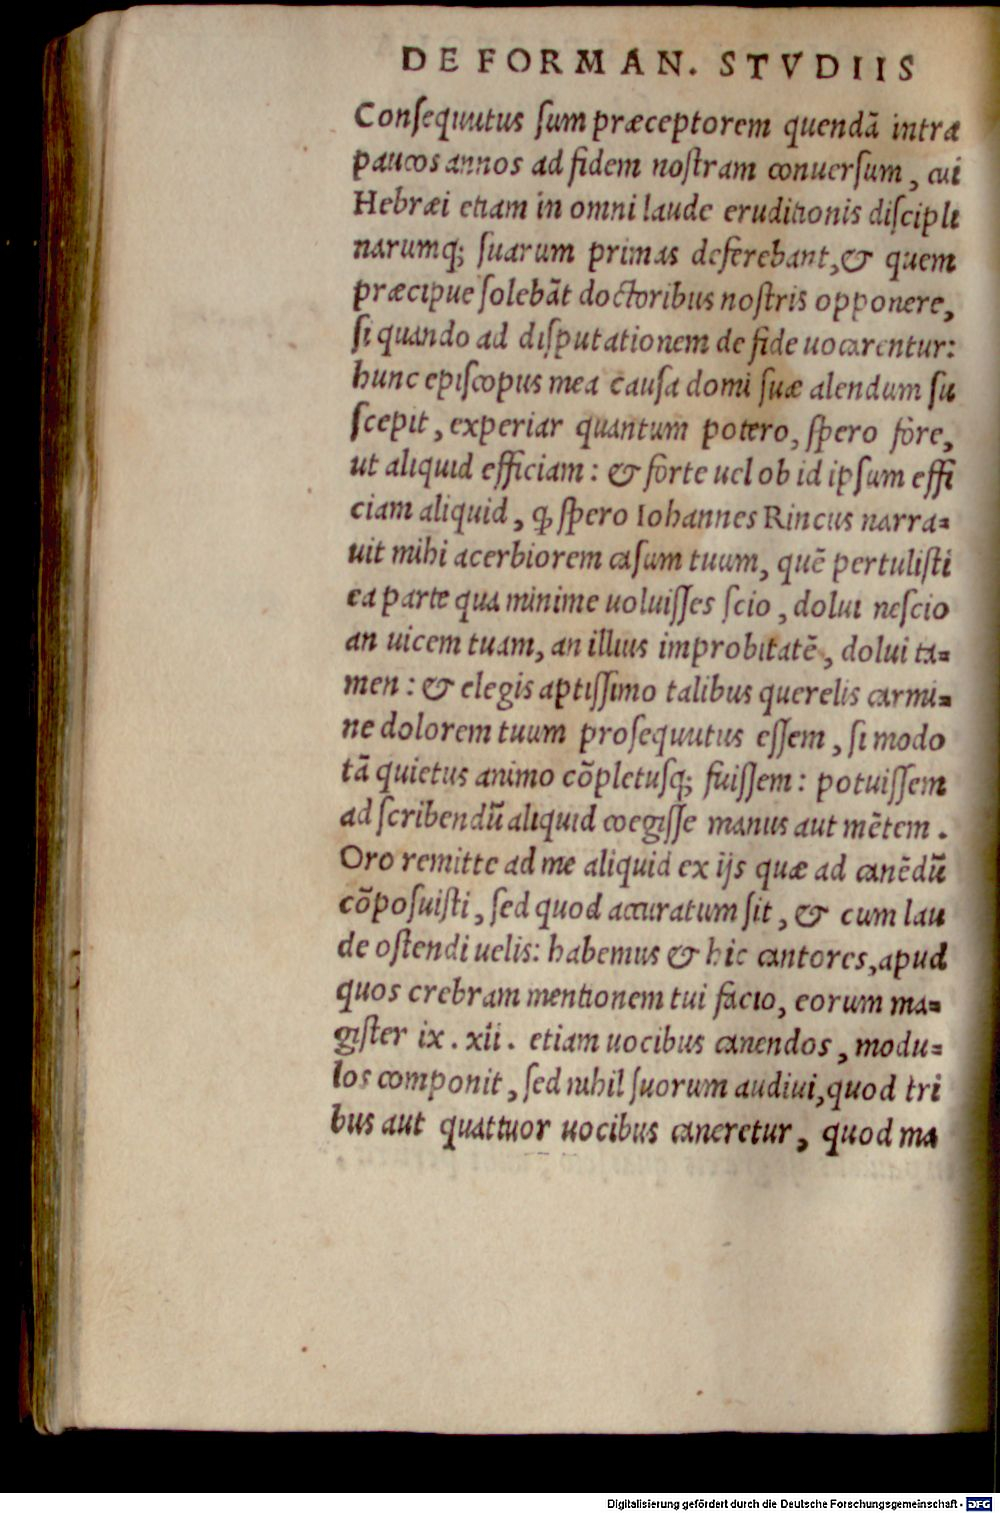 DE FORMAN. STVDIIS
Consequutus sum præceptorem quendã intra
paucos annos ad fidem nostram conuersum, cui
Hebræi etiam in omni laude eruditionis discipli
narumq; suarum primas deferebant, & quem
præcipue solebãt doctoribus nostris opponere,
si quando ad disputationem de fide uocarentur:
hunc episcopus mea causa domi suæ alendum su
scepit, experiar quantum potero, spero fore,
ut aliquid efficiam: & forte uel ob id ipsum effi
ciam aliquid, ꝙ spero Iohannes Rincus narra-
uit mihi acerbiorem casum tuum, quẽ pertulisti
ea parte qua minime uoluisses scio, dolui nescio
an uicem tuam, an illius improbitatẽ, dolui ta-
men: & elegis aptissimo talibus querelis carmi-
ne dolorem tuum prosequutus essem, si modo
tã quietus animo cõpletusq; fuissem: potuissem
ad scribendũ aliquid coegisse manus aut mẽtem.
Oro remitte ad me aliquid ex ijs quæ ad canẽdũ
cõposuisti, sed quod accuratum sit, & cum lau
de ostendi uelis: habemus & hic cantores, apud
quos crebram mentionem tui facio, eorum ma-
gister ix. xii. etiam uocibus canendos, modu-
los componit, sed nihil suorum audiui, quod tri
bus aut quattuor uocibus caneretur, quod ma
Digitalisierung gefördert durch die Deutsche Forschungsgemeinschaft - DFG